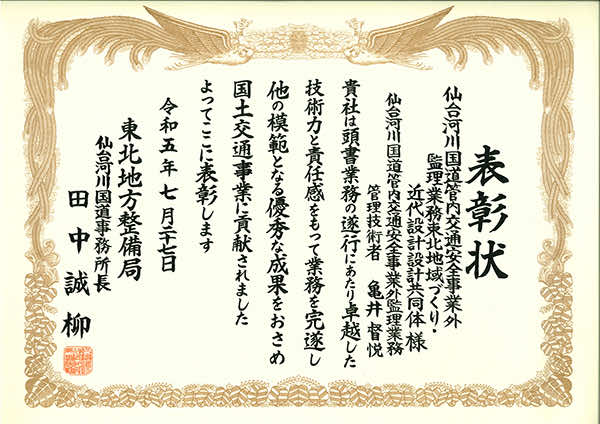 表彰状
仙台河川国道管内交通安全事業外
監理業務東北地域づくり・
近代設計設計共同体 様
仙台河川国道管内交通安全事業外監理業務
管理技術者 亀井督悦
貴社は頭書業務の遂行にあたり卓越した
技術力と責任感をもって業務を完遂し
他の模範となる優秀な成果をおさめ
国土交通事業に貢献されました
よってここに表彰します
令和五年七月二十七日
東北地方整備局
仙台河川国道事務所長
田中誠柳